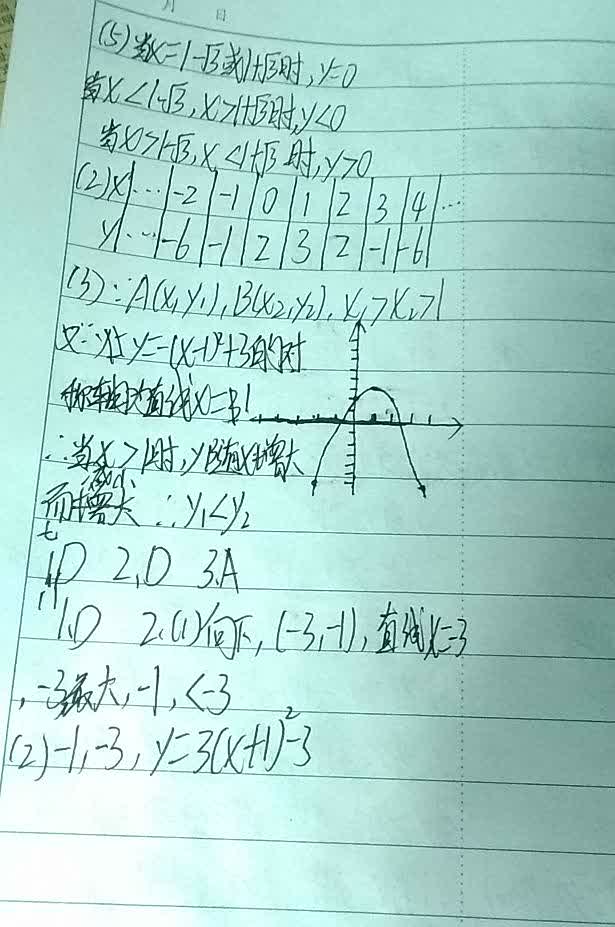 月 日
(5)当x=1-√3或1+√3时,y=0
当x<1-√3,x>1+√3时,y<0
当x>1-√3,x<1+√3时,y>0
(2)x … -2 -1 0 1 2 3 4 …
y … -6 -1 2 3 2 -1 -6
(3)∵A(x,y₁),B(x₂,y₂),x₁>x₂>1
又∵y=-(x-1)²+3的对
称轴为直线x=1
∴当x>1时,y随x增大
而减小 ∴y₁<y₂
七
1,D 2,D 3,A
1,D 2,(1)向下,(-3,-1),直线x=-3
,-3最大,-1,<-3
(2)-1,-3,y=3(x+1)²-3